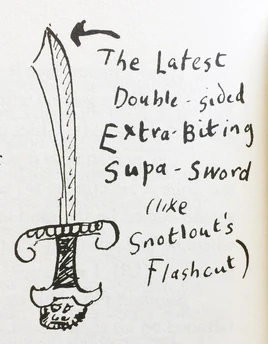 The Latest
Double-sided
Extra-Biting
Supa-Sword
(like
Snotlout's
Flashcut)